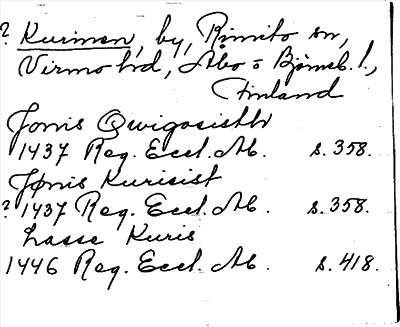 ? Kurimon, by, Rimito sn,
Virmo hd, Åbo o Björneb. l.,
Finland
Jonis Qwigosistht
1437 Reg. Eccl. Ab. s. 358.
Jønis Kurisist
? 1437 Reg. Eccl. Ab. s. 358.
Lasse Kuris
1446 Reg. Eccl. Ab. s. 418.